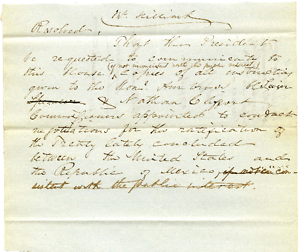 Resolved,
That the President
be requested to communicate to
(if not inconsistent with the public interest)
this House, copies of all instructions
given to the Hon. Ambrose H. Sevier
& Nathan Clifford
Commissioners appointed to conduct
negotiations for the ratification of
the Treaty lately concluded
between the United States and
the Republic of Mexico, if not incon-
sistent with the public interest.